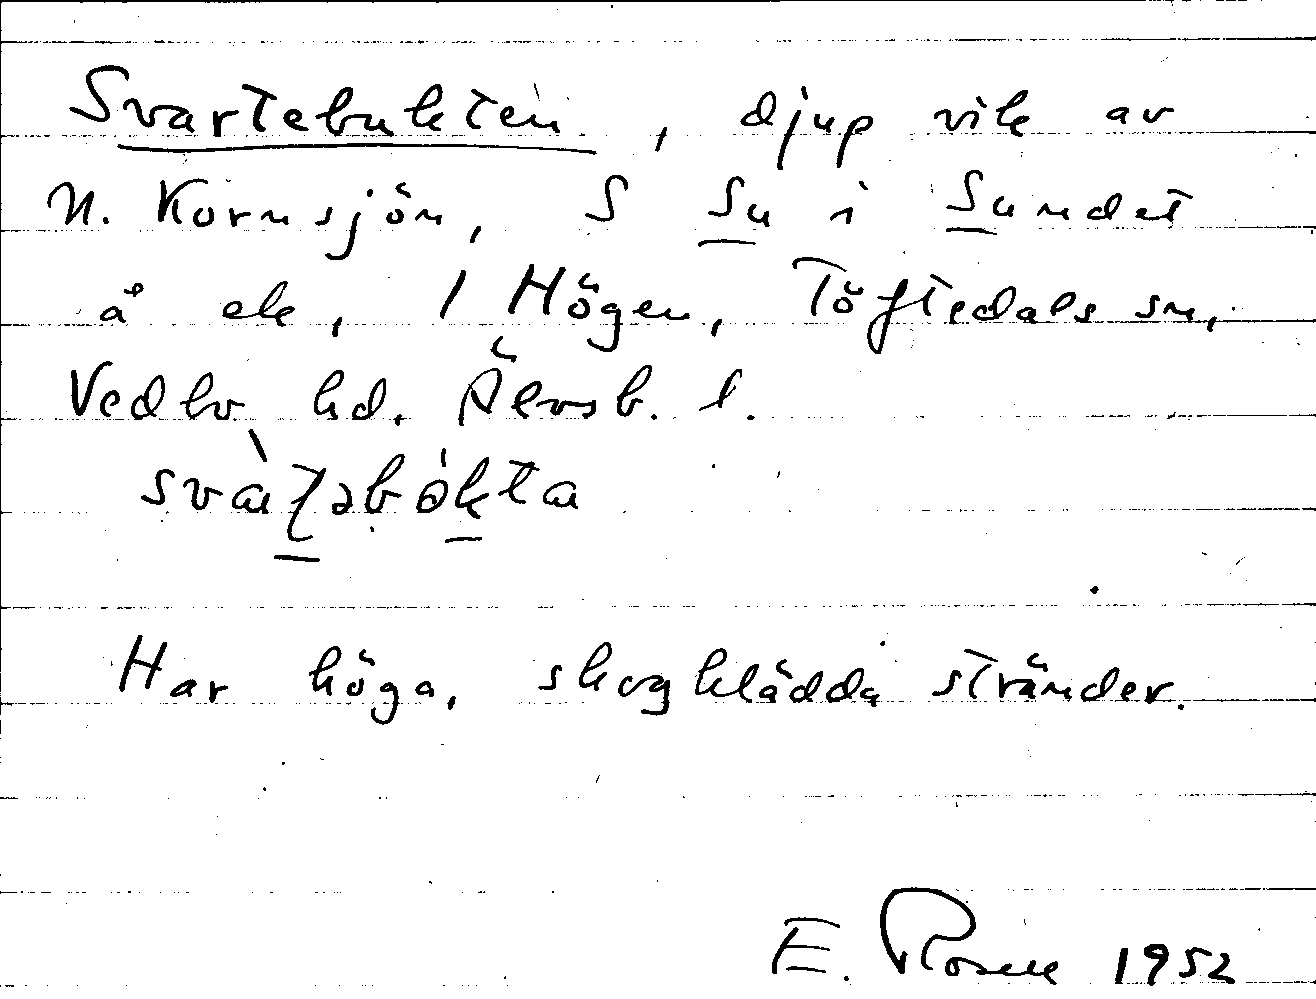 Svartebukten, djup vik av
N. Kornsjön, S Su i Sundet
å ek, 1 Högen, Töftedals sn,
Vedbo hd. Älvsb. l.
svàʈəbókta
Har höga, skogklädda stränder.
E. Rosell 1952